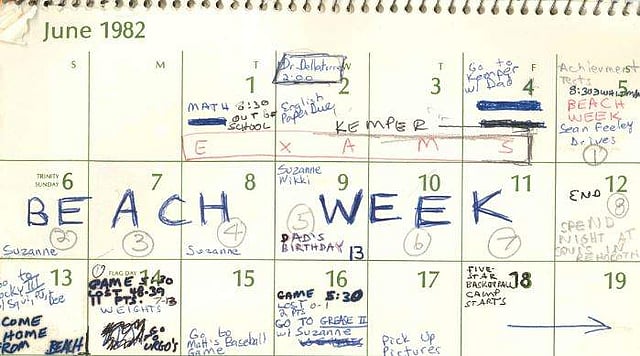 June 1982
S M T W T F S
1
MATH 8:30
OUT OF
SCHOOL
2
2:00
English
Paper Due
3
KEMPER
4
Go to
Kemper
w/ Dad
5
Achievement
Tests
8:30
BEACH
WEEK
Sean Feeley
Drives
1
E X A M S
TRINITY
SUNDAY 6
7
8
9
10
11
12
BEACH WEEK
Suzanne
2
3
Suzanne
4
Suzanne
Nikki
5
DAD'S
BIRTHDAY
13
6
7
END
8
SPEND
NIGHT AT
IN REHOBOTH
13
Go to
Rocky III
COME
HOME
FROM BEACH
FLAG DAY 14
GAME 5:30
LOST 48-39
11 PTS 7-13
WEIGHTS
Go
15
Go to
Matt's Baseball
Game
16
GAME 5:30
LOST
2 PTS
GO TO GREASE II
w/ Suzanne
17
Pick Up
Pictures
18
FIVE-
STAR
BASKETBALL
CAMP
STARTS
19